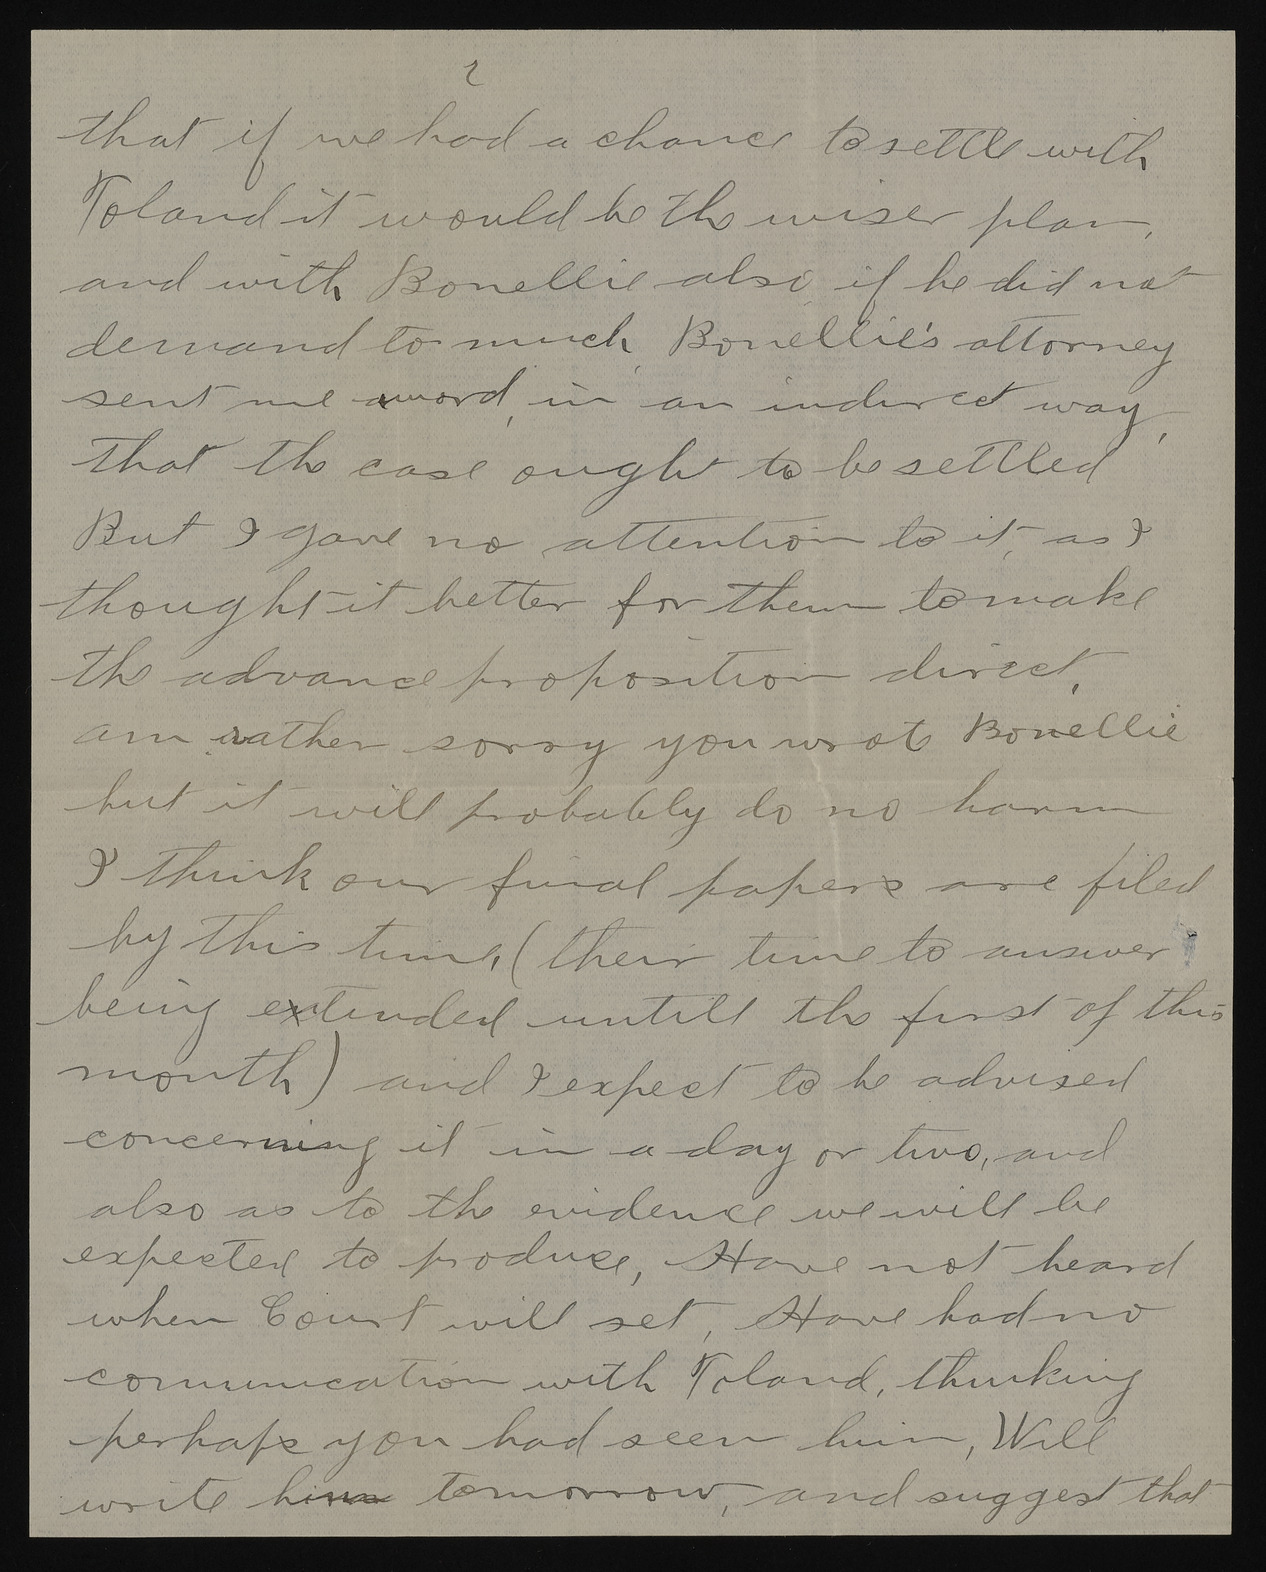 2
that if we had a chance to settle with
Toland it would be the wiser plan,
and with Bonellie also, if he did not
demand to much, Bonellie's attorney
sent me word, in an indirect way,
that the case ought to be settled
But I gave no attention to it, as I
thought it better for them to make
the advance proposition direct,
am rather sorry you wrote Bonellie
but it will probably do no harm
I think our final papers are filed
by this time, (their time to answer
being extended untill the first of this
month) and I expect to be advised
concerning it in a day or two, and
also as to the evidence we will be
expected to produce, Have not heard
when Court will set, Have had no
communication with Toland, thinking
perhaps you had seen him, Will
write him tomorrow, and suggest that